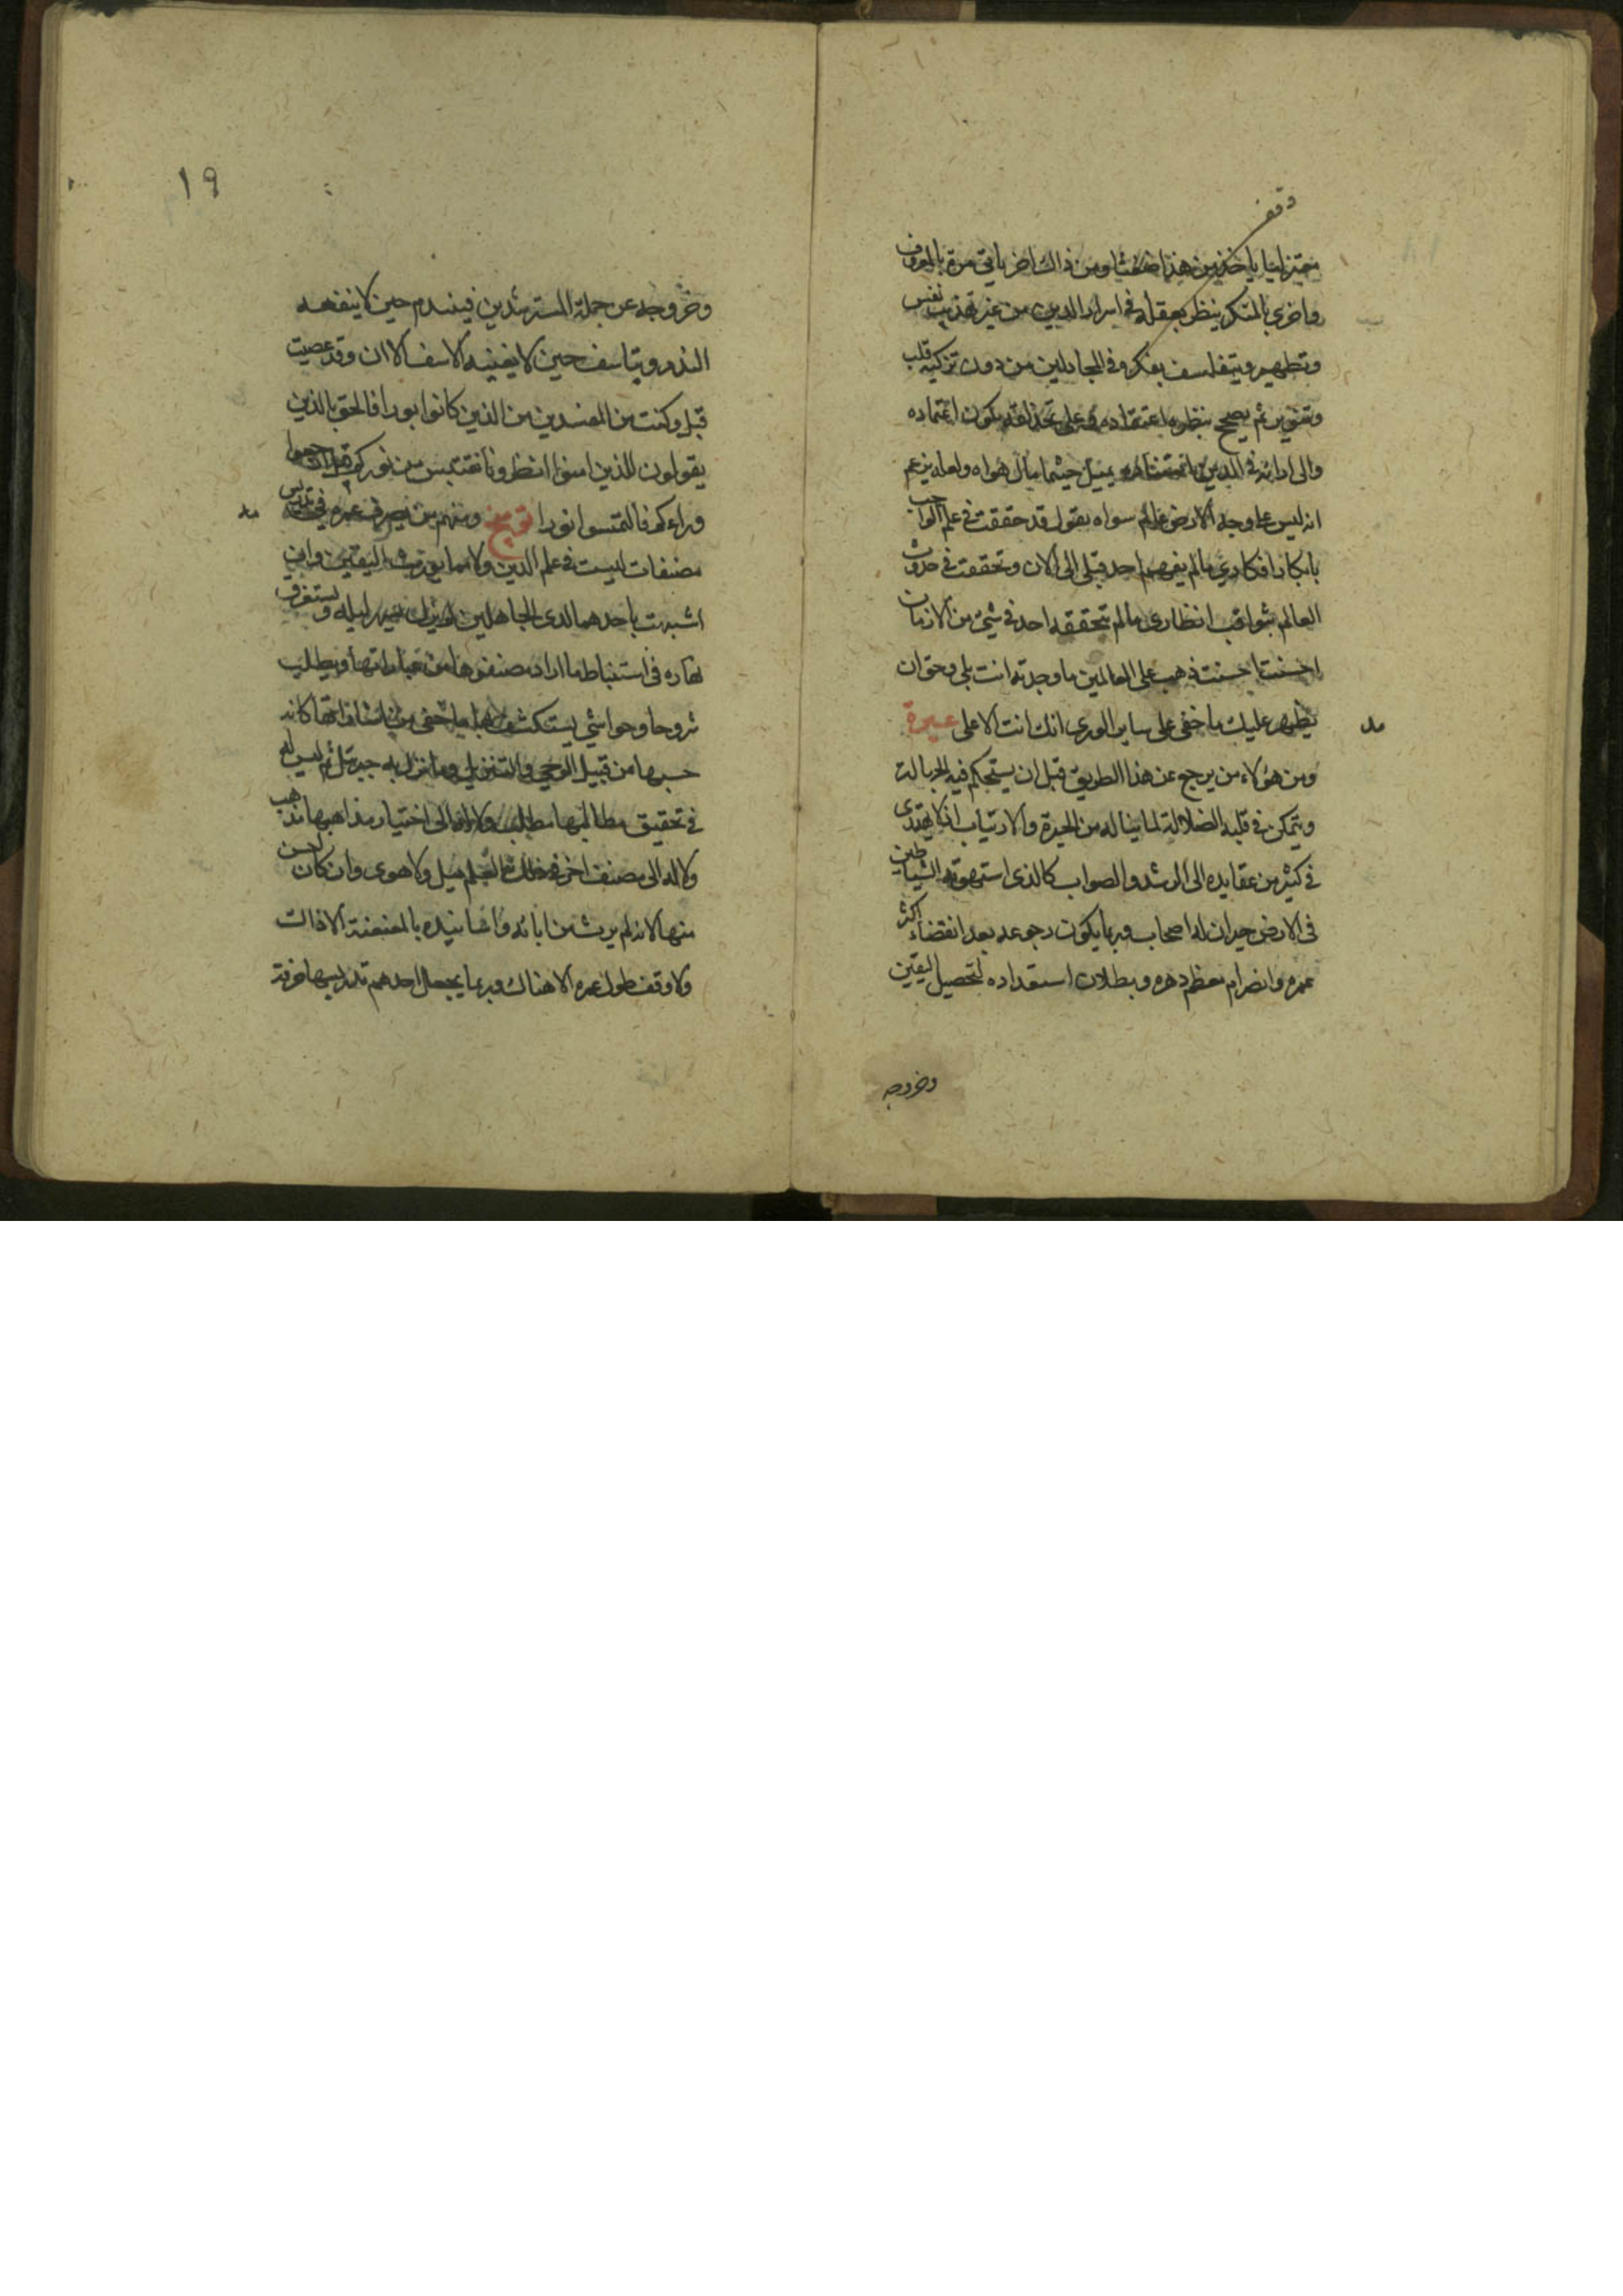 وقف
معتزليا ياخذ من هذا ضغثا ومن ذاك اخر ياتى مرة بالمعروف
واخرى بالمنكر ينظر بعقله فى اسرار الدين من غير تهذيب نفس
وتطهير ويتفلسف بفكره فى المجادلين من دون تزكية قلب
وتنوير ثم يصحح بنظره اعتقاده وعلى يكون اعتماده
والى ارائه فى الدين يميل حيثما مال هواه ولعله يزعم
انه ليس على وجه الارض عالم سواه يقول قد حققت فى علم الواجب
بابكار افكارى ما لم يفهمه احد قبلى الى الان وتحققت فى حدوث
العالم بثواقب انظارى ما لم يتحققه احد فى شىء من الازمان
احسنت احسنت ذهب على العالمين ما وجدته انت بلى وحق ان
يظهر عليك ما خفى على ساير الورى انك انت الاعلى عبرة
ومن هؤلاء من يرجع عن هذا الطريق قبل ان يستحكم فيه الجهالة
ويتمكن فى قلبه الضلالة لما يناله من الحيرة والارتياب اذ لا يهتدى
فى كثير من عقايده الى الرشد والصواب كالذى استهوته الشياطين
فى الارض حيران له اصحاب وربما يكون رجوعه بعد انقضاء اكثر
عمره وانصرام معظم دهره وبطلان استعداده لتحصيل اليقين
وخروجه
١٩
وخروجه عن جملة المسترشدين فيندم حين لا ينفعه
الندم ويتاسف حين لا يغنيه الاسف الا ان وقد عصيت
قبل وكنت من المفسدين من الذين كانوا بورا فالحق بالذين
يقولون للذين امنوا انظرونا نقتبس من نوركم قيل ارجعوا
وراءكم فالتمسوا نورا توبيخ ومنهم من يصرف عمره فى تدريس
مصنفات ليست فى علم الدين ولا مما يورث اليقين وان
اشبهت باحدهما لدى الجاهلين ليله ويستغرق
نهاره فى استنباط ما اراده مصنفوها من عباراتها ويطلب
شروحا وحواشى يستكشف بها ما خفى من اشاراتها كانه
حسبها من قبيل الوحى والتنزيل وما نزل به جبرئيل ثم ليس له
فى تحقيق مطالبها مطلب ولا له الى اختيار مذاهبها مذهب
ولا له الى مصنف اخر فى ذلك العلم ميل ولا هوى وان كان احسن
منها لانه لم يرث من ابائه واسانيده بالمعنعنة الا ذاك
ولا وقف طول عمره الا هناك وربما يجعل احدهم تدريسها حرفة